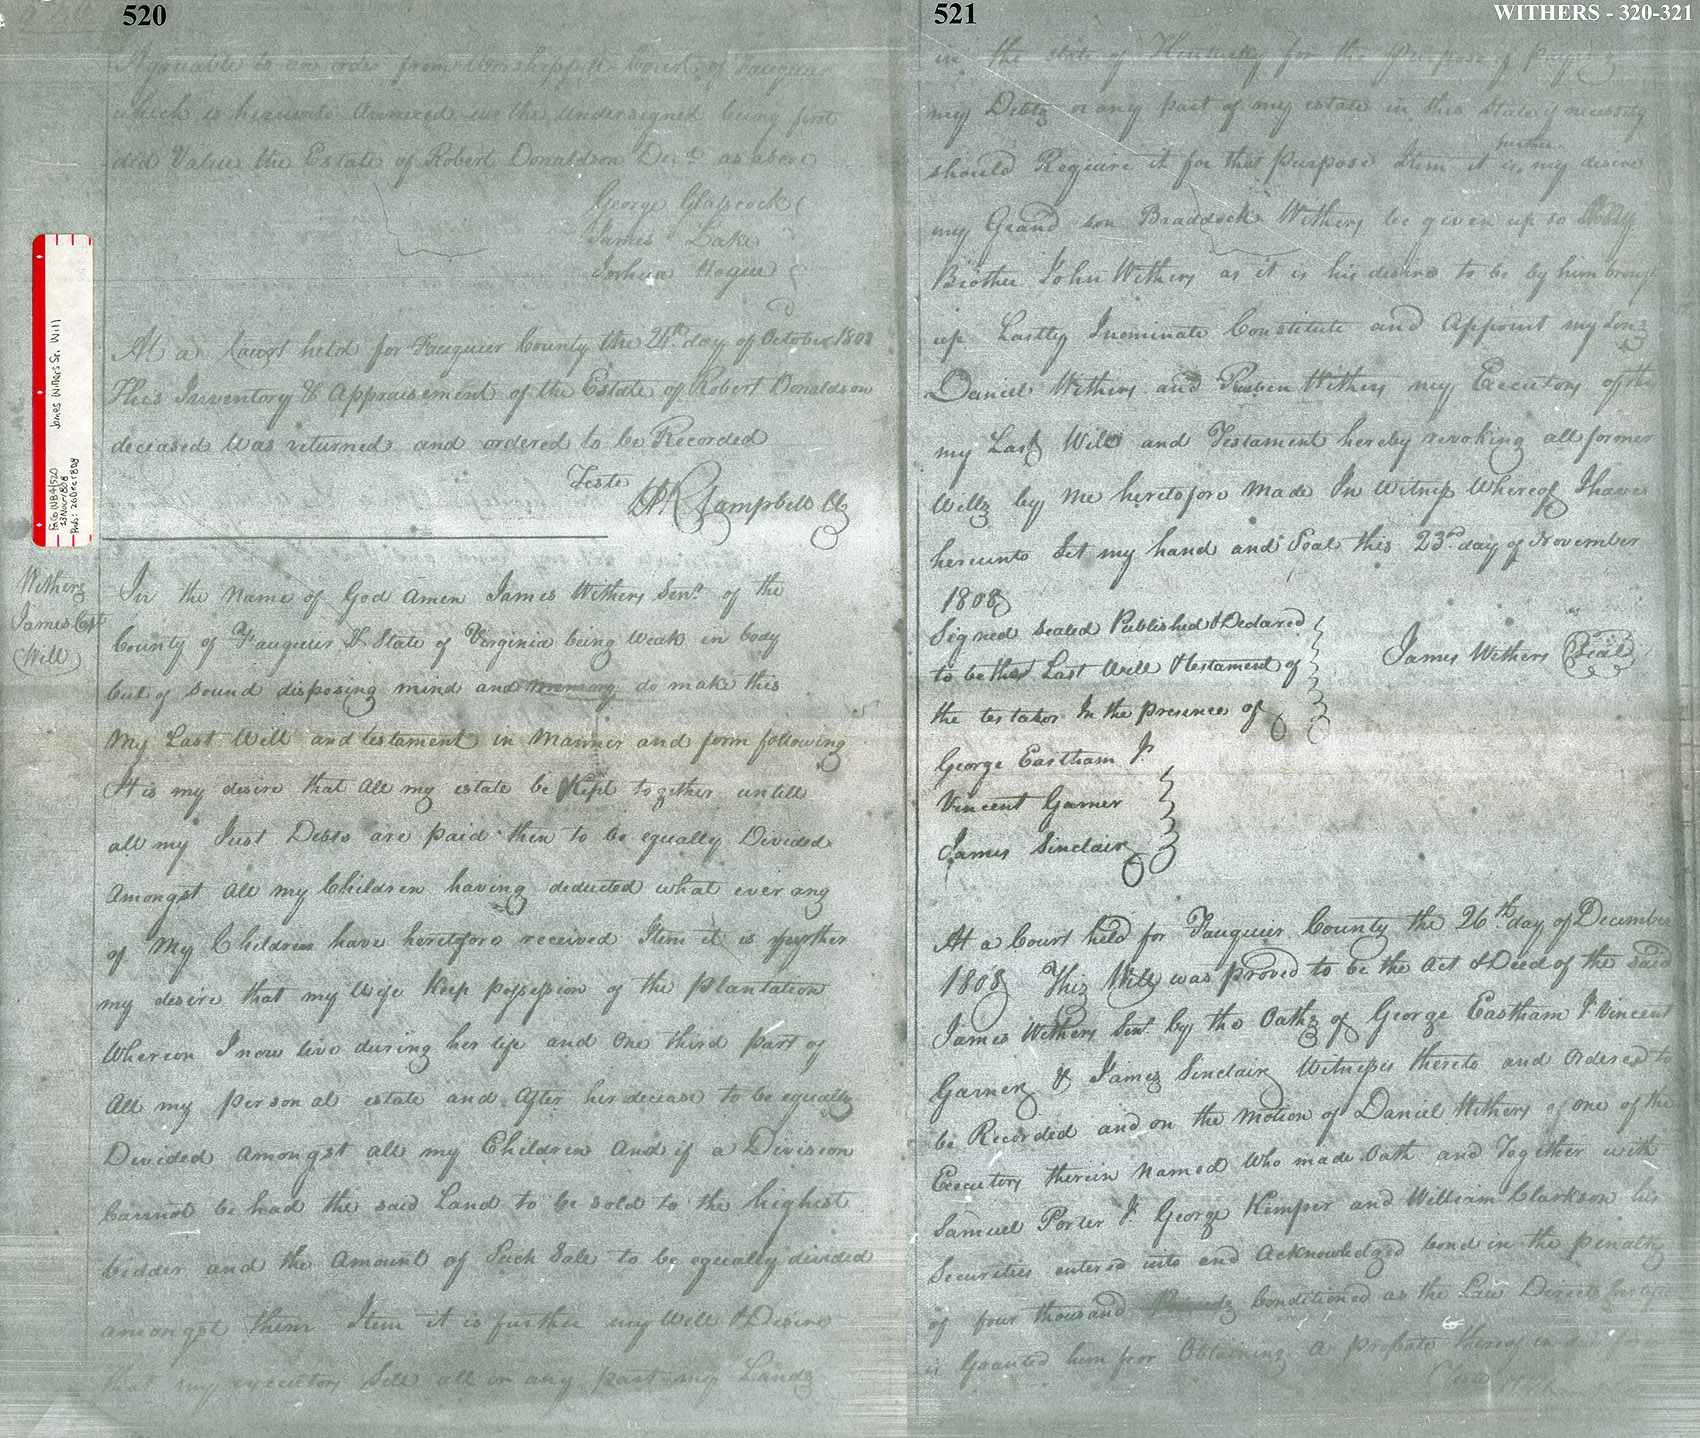 520
Agreeable to an order from Worshippfl Court of Fauquier
which is hereunto Annexed we the undersigned being first
did Value the Estate of Robert Donaldson Decd as above
George Glapscock
James Lake
Joshua Hogue
At a Court held for Fauquier County the 24th day of October 1808
This Inventory & Appraisement of the Estate of Robert Donaldson
deceased was returned and ordered to be Recorded
Teste
H R Campbell Clk
Withers
James
(Will)
In the Name of God Amen James Withers Senr of the
County of Fauquier & State of Virginia being weak in body
but of Sound disposing mind and memory do make this
My Last Will and testament in Manner and form following
It is my desire that all my estate be Kept together untill
all my Just Debts are paid then to be equally Divided
Amongst all my Children having deducted what ever any
of My Children have heretofore received Item it is further
my desire that my Wife Keep possession of the plantation
Whereon I now live during her life and One third part of
All my personal estate and After her decease to be equally
Divided amongst all my Children And if a Division
Cannot be had the said Land to be sold to the highest
bidder and the Amount of Such Sale to be equally divided
amongst them Item it is further my Will & Desire
that my executors Sell all or any part my Lands
Fa Co WB 4/520
23 Nov 1808
Prob: 26 Dec 1808
James Withers Sr. Will
521
WITHERS - 320-321
in the state of Kentucky for the Purpose of paying
my Debts or any part of my estate in this State if necessity
further
should Require it for that purpose Item it is my desire
my Grand son Braddock Withers be given up to
Brother John Withers as it is his desire to be by him
up Lastly I nominate Constitute and Appoint my Sons
Daniel Withers and Reuben Withers my Executors of this
my Last Will and Testament hereby revoking all former
Wills by Me heretofore Made In Witness Whereof I have
hereunto Set my hand and Seal this 23rd day of November
1808
Signed Sealed Published & Declared
to be the Last Will & testament of
the testator In the presence of
James Withers (Seal)
George Eastham Jr
Vincent Garner
James Sinclair
At a Court held for Fauquier County the 26th day of December
1808 This Will was proved to be the Act & Deed of the said
James Withers Senr by the Oaths of George Eastham Jr Vincent
Garner & James Sinclair Witnesses thereto and Ordered to
be Recorded and on the Motion of Daniel Withers of one of the
Executors therein Named Who made Oath and Together with
Samuel Porter Jr George Kemper and William Clarkson his
Securities entered into and Acknowledged bond in the penalty
of four thousand Conditioned as the Law Directs
is Granted him for Obtaining a probate thereof in due form
Teste